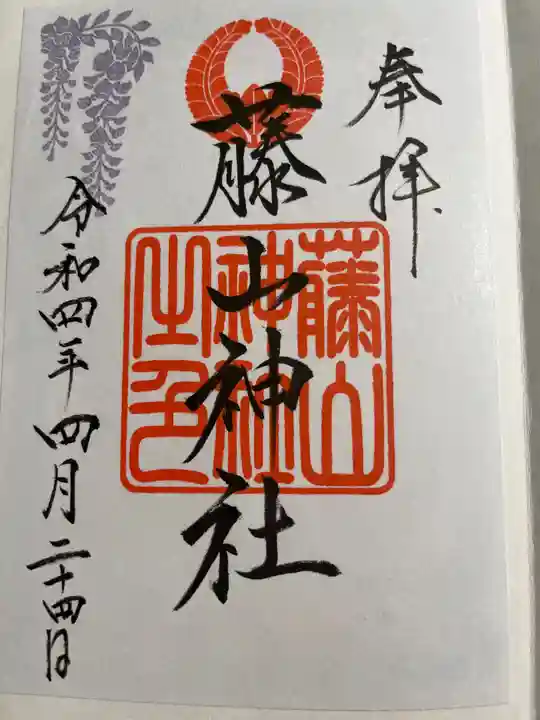 奉拝
藤山神社
藤山
神社
之印
令和四年四月二十四日